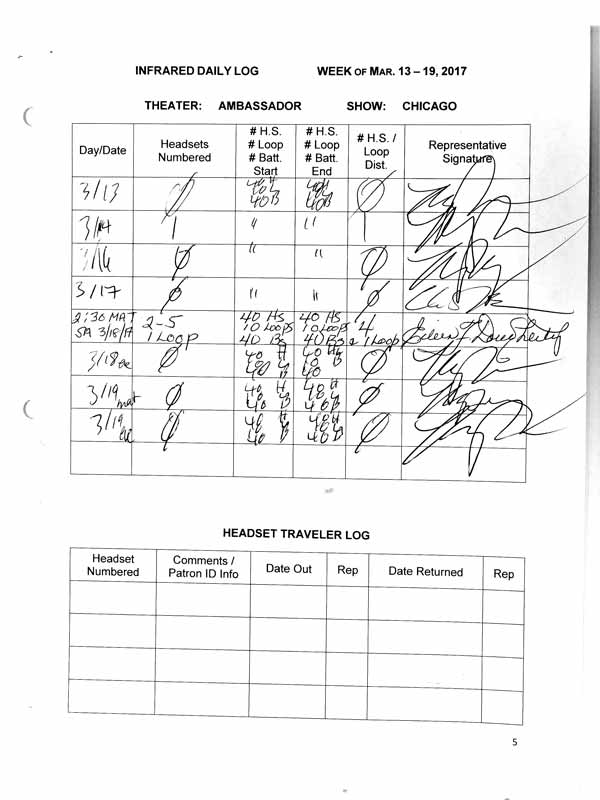 INFRARED DAILY LOG WEEK OF MAR. 13 – 19, 2017
THEATER: AMBASSADOR SHOW: CHICAGO
Day/Date Headsets Numbered # H.S. # Loop # Batt. Start # H.S. # Loop # Batt. End # H.S. / Loop Dist. Representative Signature
3/13 Ø 40 H 10 L 40 B 40 H 10 L 40 B Ø
3/14 | " " |
3/16 Ø " " Ø
3/17 Ø " " Ø
2:30 MAT SA 3/18/17 2-5 1 Loop 40 HS 10 Loops 40 Bs 40 HS 10 Loops 40 Bs 4 1 Loop Eileen Dougherty
3/18 Ø 40 H 40 B 40 H 10 40 Ø
3/19 mat Ø 40 H 40 B 40 H 40 B Ø
3/19 Ø 40 H 40 B 40 H 40 B Ø
HEADSET TRAVELER LOG
Headset Numbered Comments / Patron ID Info Date Out Rep Date Returned Rep
5